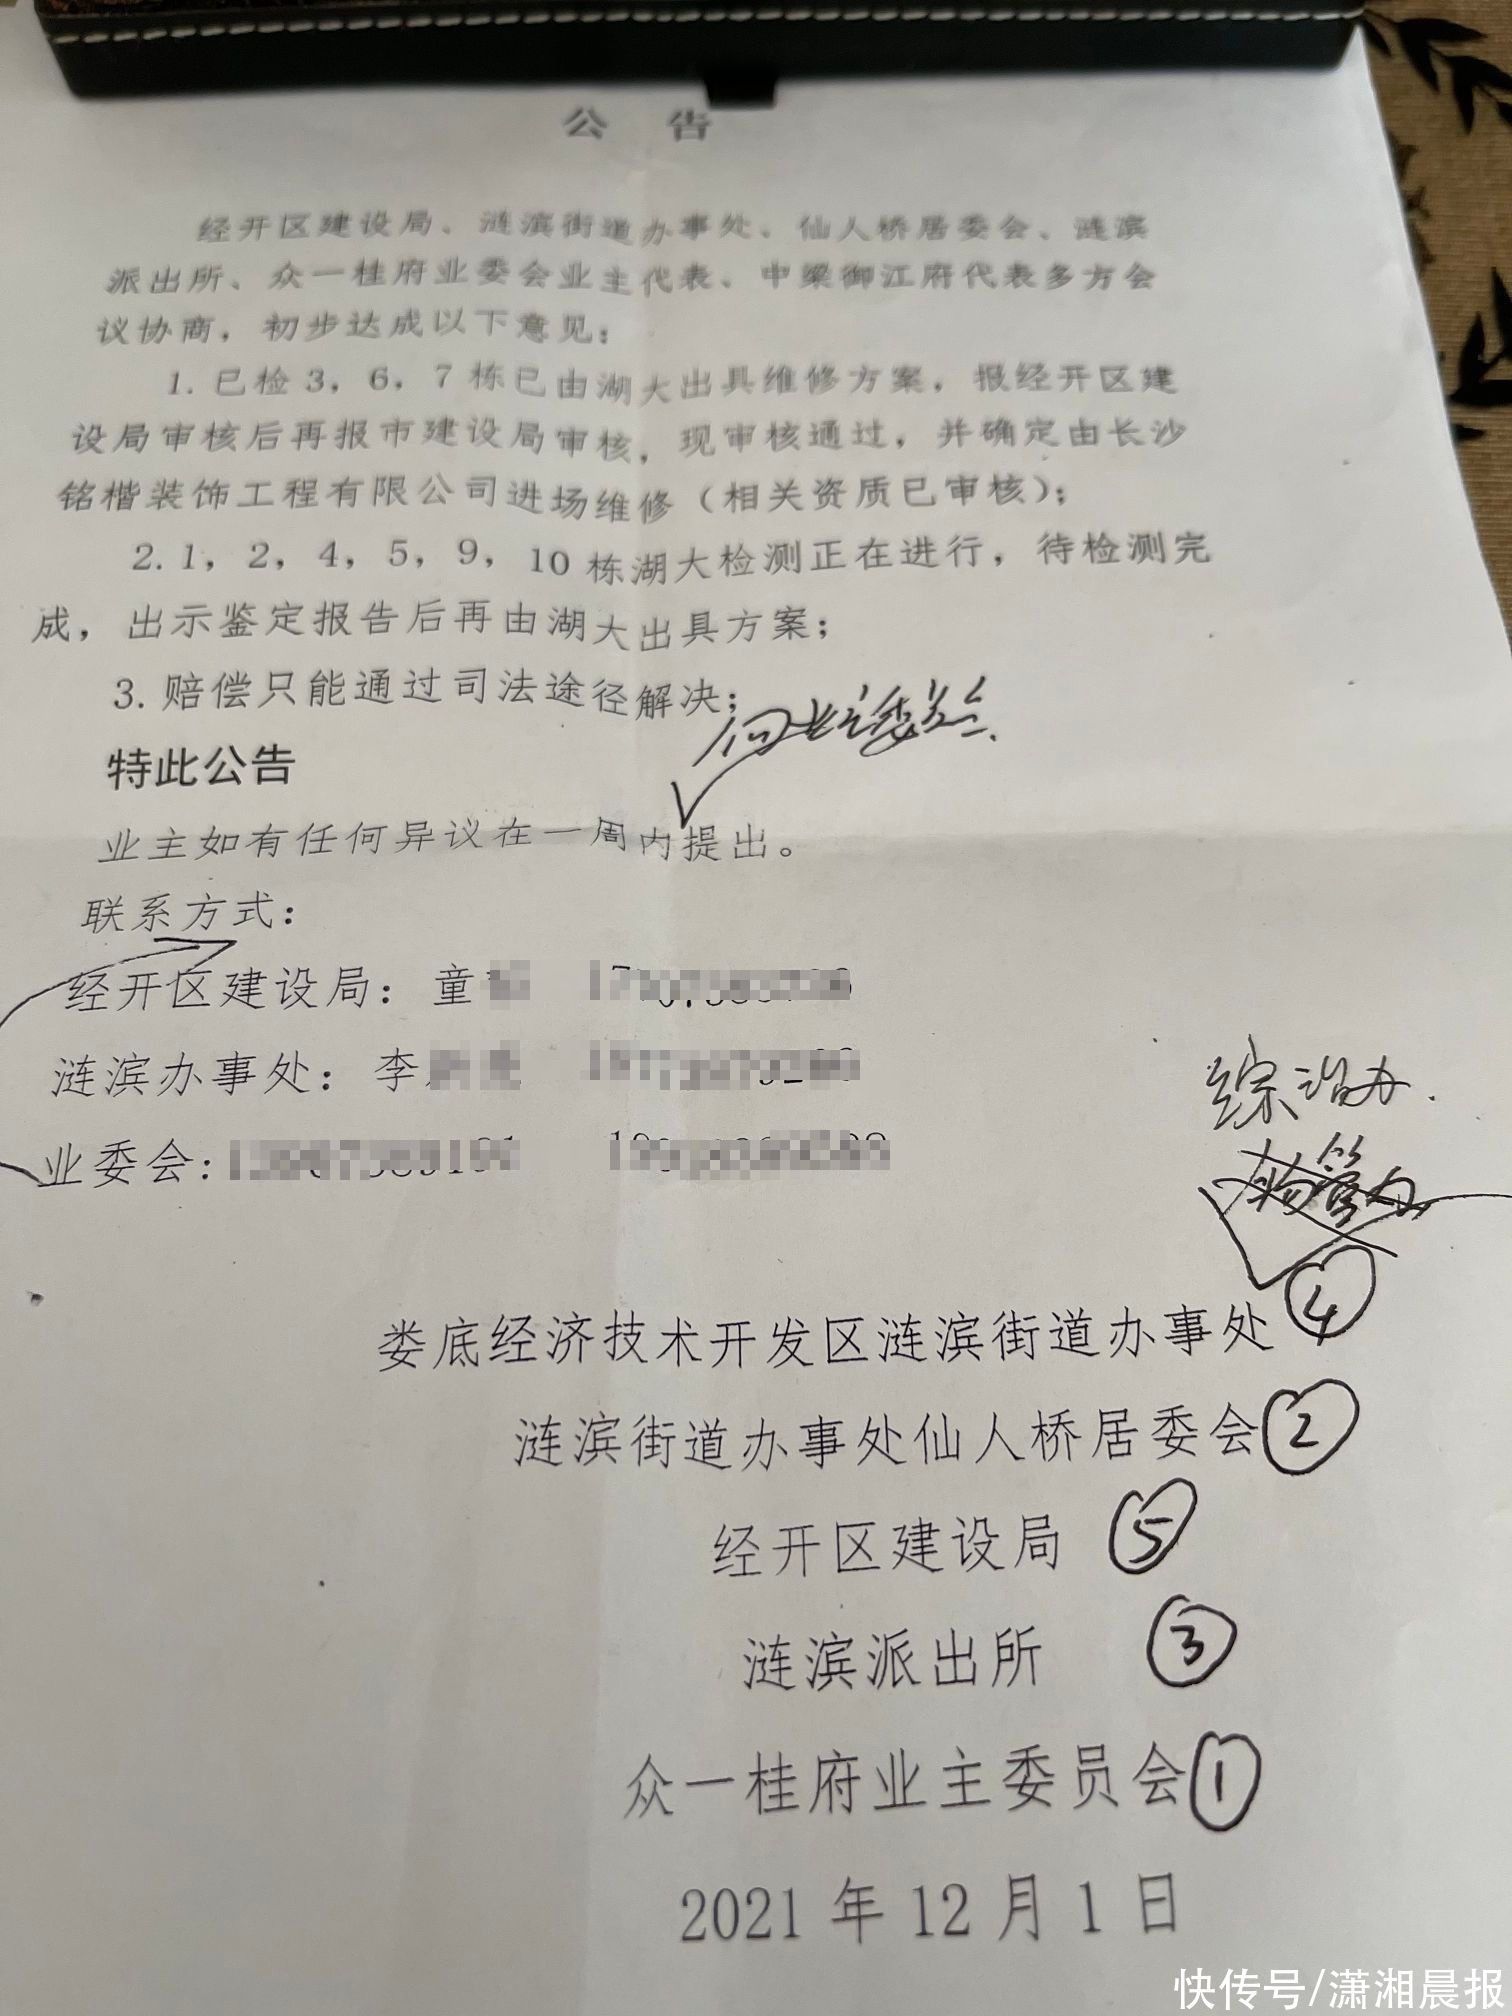 公 告
经开区建设局、涟滨街道办事处、仙人桥居委会、涟滨
派出所、众一桂府业委会业主代表、中梁御江府代表多方会
议协商，初步达成以下意见：
1. 已检 3，6，7 栋已由湖大出具维修方案，报经开区建
设局审核后再报市建设局审核，现审核通过，并确定由长沙
铭楷装饰工程有限公司进场维修（相关资质已审核）；
2. 1，2，4，5，9，10 栋湖大检测正在进行，待检测完
成，出示鉴定报告后再由湖大出具方案；
3. 赔偿只能通过司法途径解决；
向业主委员会
特此公告
业主如有任何异议在一周内提出。
联系方式：
经开区建设局：童
涟滨办事处：李
业委会：
综治办.
物管办
娄底经济技术开发区涟滨街道办事处 ④
涟滨街道办事处仙人桥居委会 ②
经开区建设局 ⑤
涟滨派出所 ③
众一桂府业主委员会 ①
2021 年 12 月 1 日
快传号/潇湘晨报